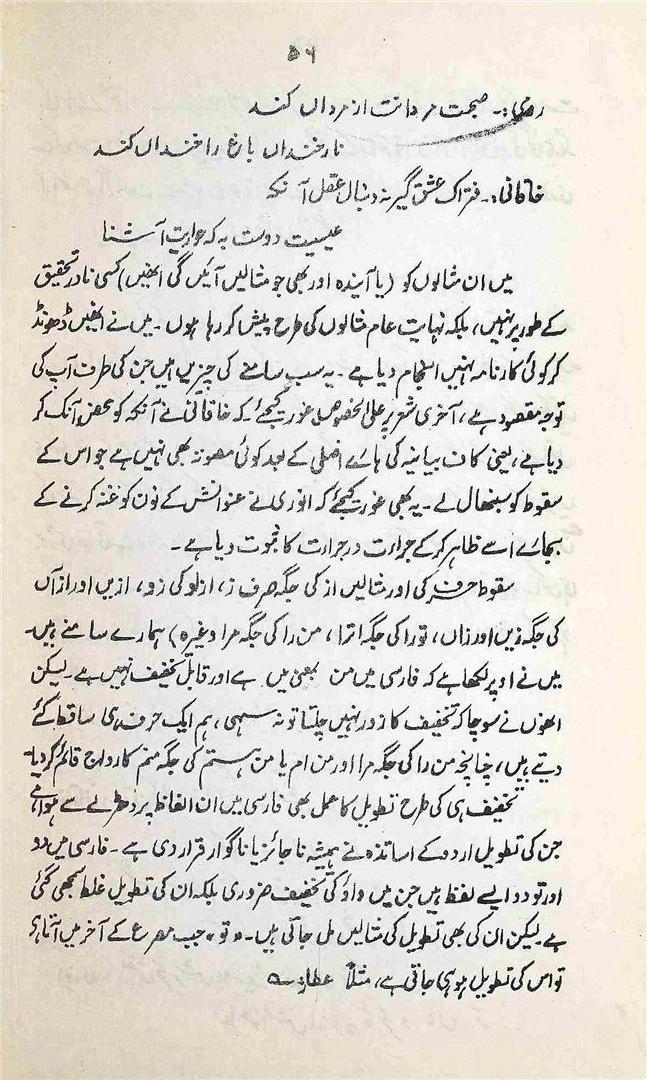 ۵۶
رومی:۔ صحبت مردانت از مرداں کند
نار خنداں باغ را خنداں کند
خاقانی:۔ فتراک عشق گیر نہ دنبال عقل آنکہ
عیسیت دوست بہ کہ حواریت آشنا
میں ان مثالوں کو (یا آیندہ اور بھی جو مثالیں آئیں گی انھیں) کسی نادر تحقیق
کے طور پر نہیں، بلکہ نہایت عام مثالوں کی طرح پیش کر رہا ہوں۔ میں نے انھیں ڈھونڈ
کر کوئی کارنامہ نہیں انجام دیا ہے۔ یہ سب سامنے کی چیزیں ہیں جن کی طرف آپ کی
توجہ مقصود ہے، آخری شعر پر علی الخصوص غور کیجئے کہ خاقانی نے آنکہ کو محض آنک کر
دیا ہے، یعنی کاف بیانیہ کی ہائے اصلی کے بعد کوئی مصوتہ بھی نہیں ہے جو اس کے
سقوط کو سنبھال لے۔ یہ بھی غور کیجئے کہ انوری نے عنوانش کے نون کو غنہ کرنے کے
بجائے اسے ظاہر کر کے جرات در جرات کا ثبوت دیا ہے۔
سقوط حرف کی اور مثالیں از کی جگہ صرف ز، ازلو کی زو، ازیں اور ازآں
کی جگہ زیں اور زاں، تو را کی جگہ اترا، من را کی جگہ مرا وغیرہ) ہمارے سامنے ہیں۔
میں نے اوپر لکھا ہے کہ فارسی میں من بمعنی میں ہے اور قابل تخفیف نہیں ہے۔ لیکن
انھوں نے سوچا کہ تخفیف کا زور نہیں چلتا تو نہ سہی، ہم ایک حرف ہی ساقط کئے
دیتے ہیں، چنانچہ من را کی جگہ مرا اور من ام یا من ہستم کی جگہ منم کا رواج قائم کر دیا۔
تخفیف ہی کی طرح تطویل کا عمل بھی فارسی میں ان الفاظ پر دھڑلے سے ہوا ہے
جن کی تطویل اردو کے اساتذہ نے ہمیشہ ناجائز یا ناگوار قرار دی ہے۔ فارسی میں دو
اور تو دو ایسے لفظ ہیں جن میں واؤ کی تخفیف ضروری بلکہ ان کی تطویل غلط سمجھی گئی
ہے لیکن ان کی بھی تطویل کی مثالیں مل جاتی ہیں۔ "تو" جب مصرع کے آخر میں آتا ہی
تو اس کی تطویل ہو ہی جاتی ہے، مثلاً عطار؎